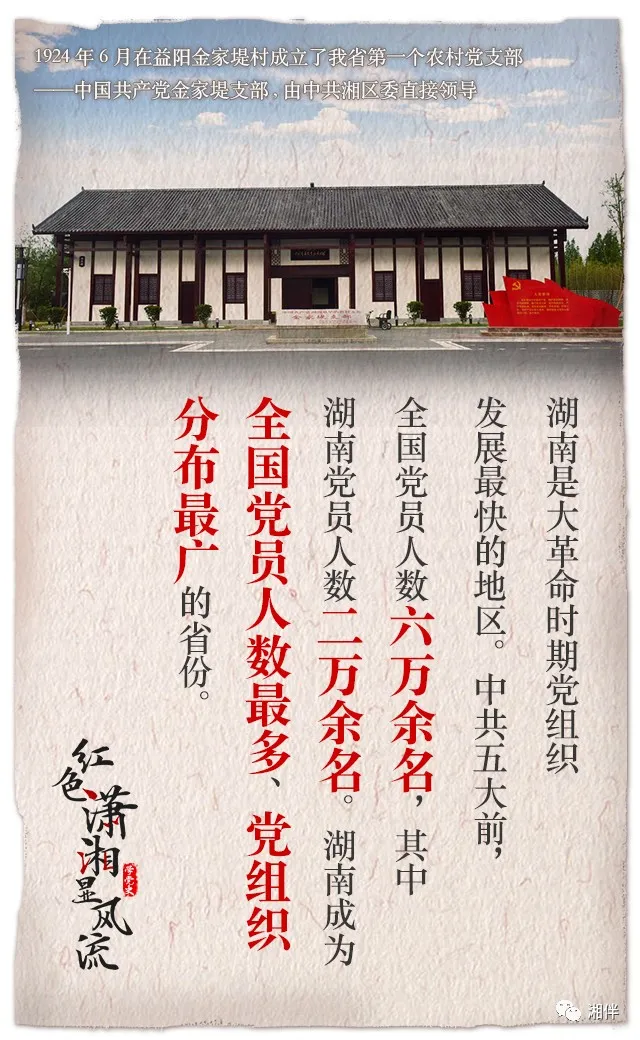 1924年6月在益阳金家堤村成立了我省第一个农村党支部
——中国共产党金家堤支部，由中共湘区委直接领导
湖南是大革命时期党组织
发展最快的地区。中共五大前，
全国党员人数六万余名，其中
湖南党员人数二万余名。湖南成为
全国党员人数最多、党组织
分布最广的省份。
红色潇湘显风流
学党史
湘伴